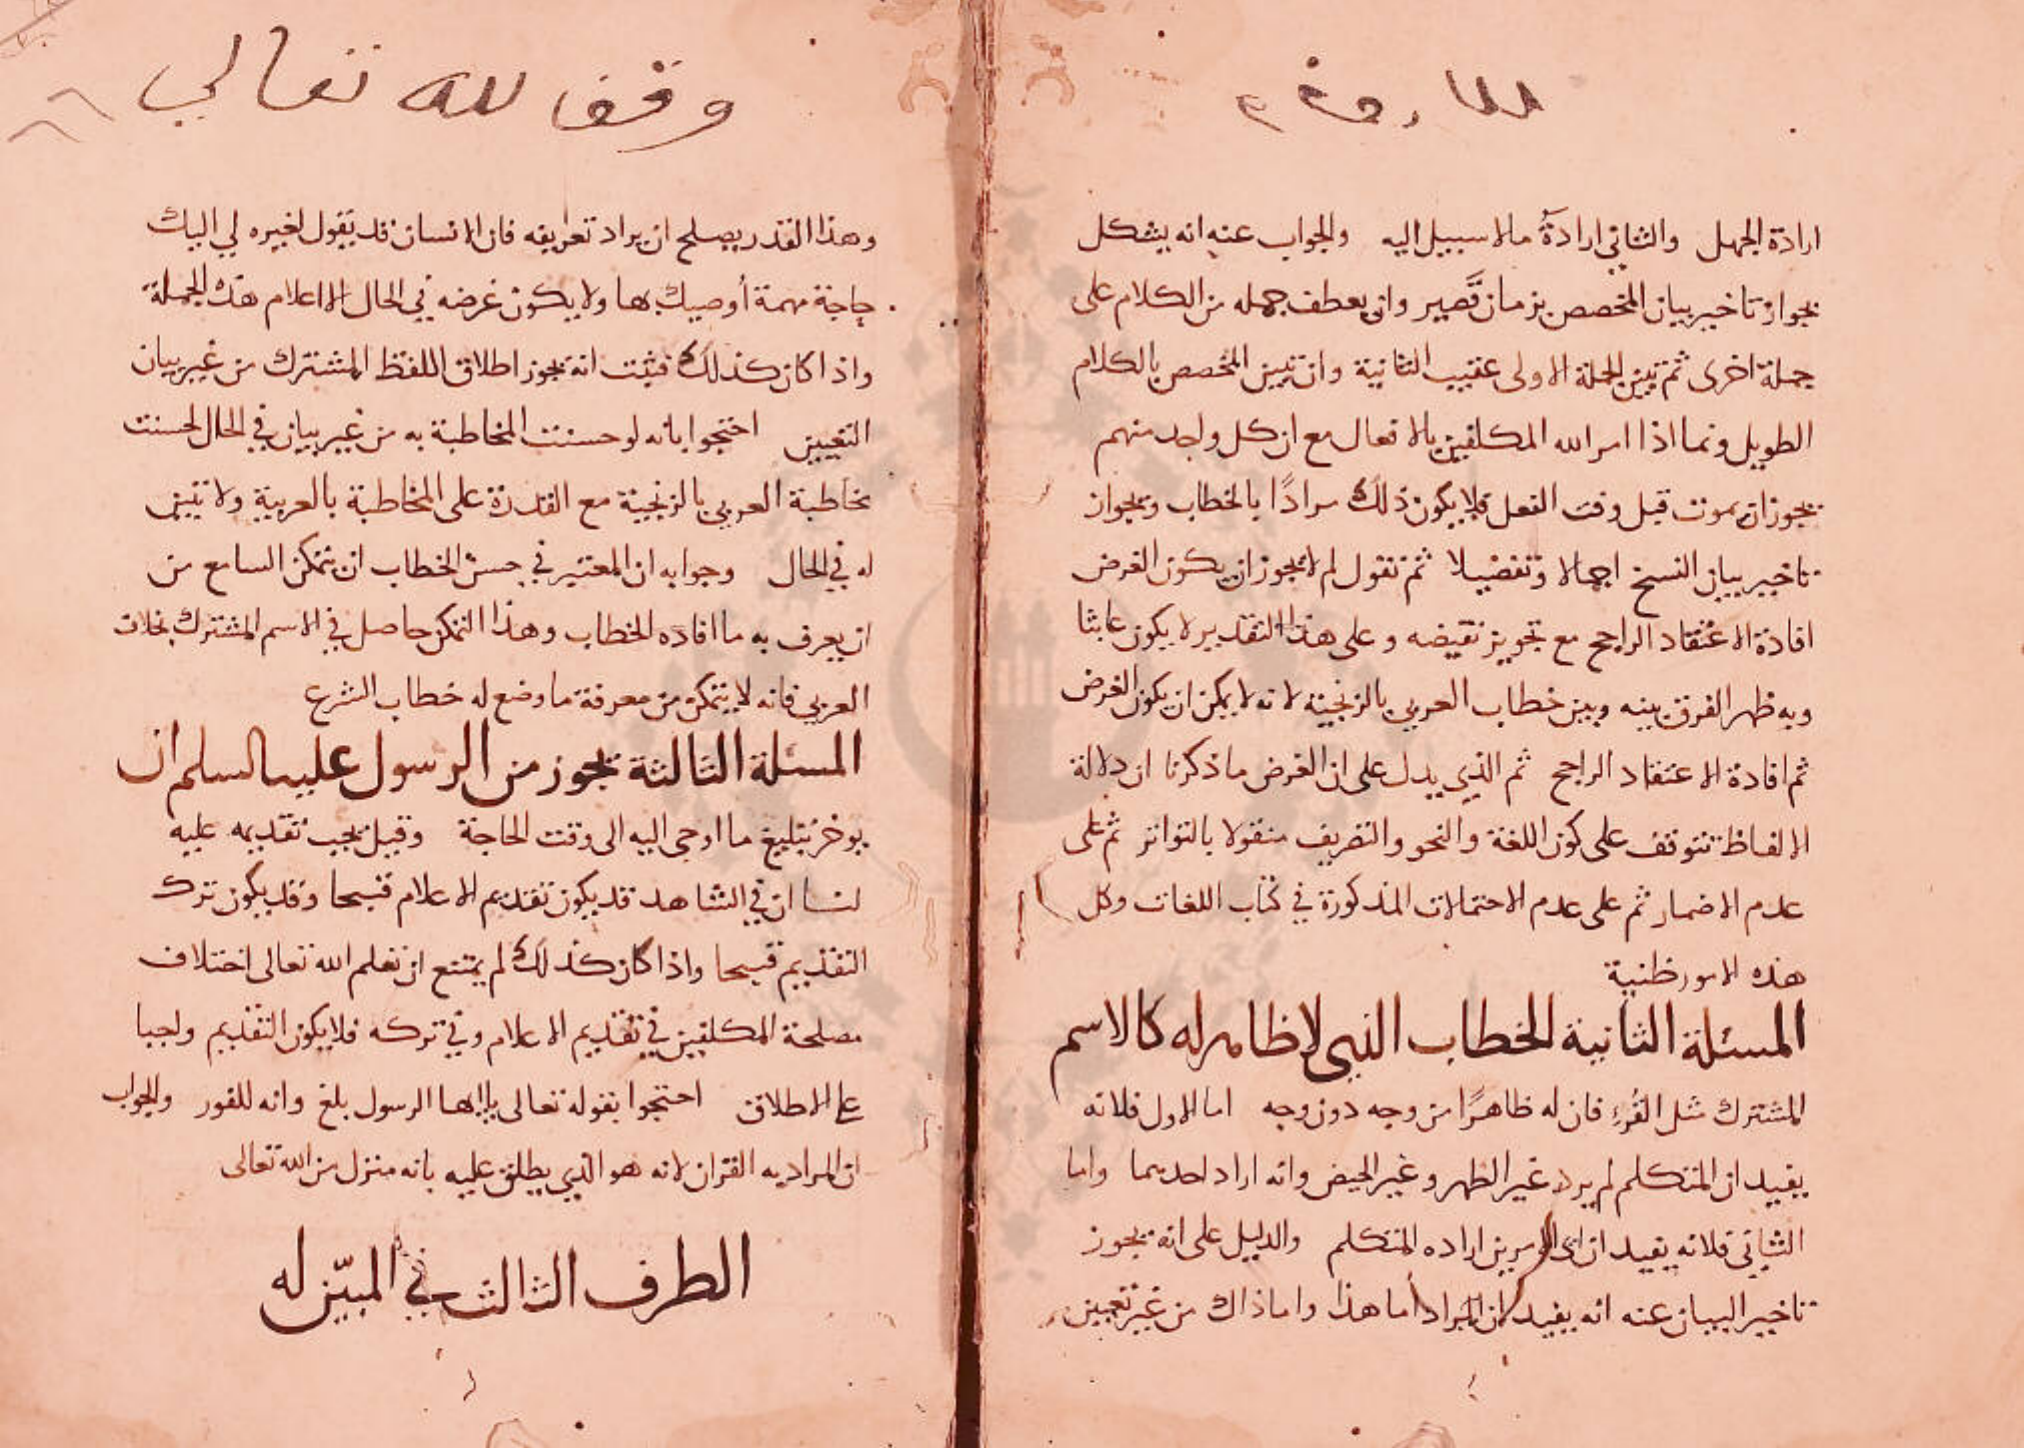 ارادة الجهل والثاني ارادة مالا سبيل اليه والجواب عنه انه يشكل
بجواز تاخير بيان المخصص بزمان قصير وان يعطف جملة من الكلام على
جملة اخرى ثم تبين الجملة الاولى عقيب الثانية وان تبين المخصص بالكلام
الطويل ونما اذا امر الله المكلفين بالافعال مع ان كل واحد منهم
يجوز ان يموت قبل وقت الفعل فلا يكون ذلك مرادًا بالخطاب وبجواز
تاخير بيان النسخ اجمالا وتفصيلا ثم نقول لم لا يجوز ان يكون الغرض
افادة الاعتقاد الراجح مع تجويز نقيضه وعلى هذا التقدير لا يكون عابثا
وبه ظهر الفرق بينه وبين خطاب العربي بالزنجية لانه لا يمكن ان يكون الغرض
ثم افادة الاعتقاد الراجح ثم الذي يدل على ان الغرض ما ذكرنا ان دلالة
الالفاظ تتوقف على كون اللغة والنحو والتصريف منقولا بالتواتر ثم على
عدم الاضمار ثم على عدم الاحتمالات المذكورة في كتاب اللغات وكل
هذه الامور ظنية
المسئلة الثانية الخطاب الذي لا ظاهر له كالاسم
المشترك مثل القُرء فان له ظاهرًا من وجه دون وجه اما الاول فلانه
يفيد ان المتكلم لم يرد غير الطهر وغير الحيض وانه اراد احدهما واما
الثاني فلانه يفيد ان اي الامرين اراده المتكلم والدليل على انه يجوز
تاخير البيان عنه انه يفيد ان المراد أما هذا واما ذاك من غير تعيين
وقف لله تعالي
وهذا القدر يصلح ان يراد تعريفه فان الانسان قد يقول لغيره لي اليك
حاجة مهمة أوصيك بها ولا يكون غرضه في الحال الا اعلام هذه الجملة
واذا كان كذلك فثبت انه يجوز اطلاق اللفظ المشترك من غير بيان
التعيين احتجوا بانه لو حسنت المخاطبة به من غير بيان في الحال لحسنت
مخاطبة العربي بالزنجية مع القدرة على المخاطبة بالعربية ولا تبين
له في الحال وجوابه ان المعتبر في حسن الخطاب ان يتمكن السامع من
ان يعرف به ما افاده الخطاب وهذا التمكن حاصل في الاسم المشترك بخلاف
العربي فانه لا يتمكن من معرفة ما وضع له خطاب الشرع
المسئلة الثالثة يجوز من الرسول عليه السلم ان
يوخر تبليغ ما اوحى اليه الى وقت الحاجة وقيل يجب تقديمه عليه
لنا ان في الشاهد قد يكون تقديم الاعلام قبيحا وقد يكون ترك
التقديم قبيحا واذا كان كذلك لم يمتنع ان نعلم الله تعالى اختلاف
مصلحة المكلفين في تقديم الاعلام وفي تركه فلا يكون التقديم واجبا
على الاطلاق احتجوا بقوله تعالى يا ايها الرسول بلغ وانه للفور والجواب
ان المراد به القران لانه هو الذي يطلق عليه بانه منزل من الله تعالى
الطرف الثالث في المبيّن له